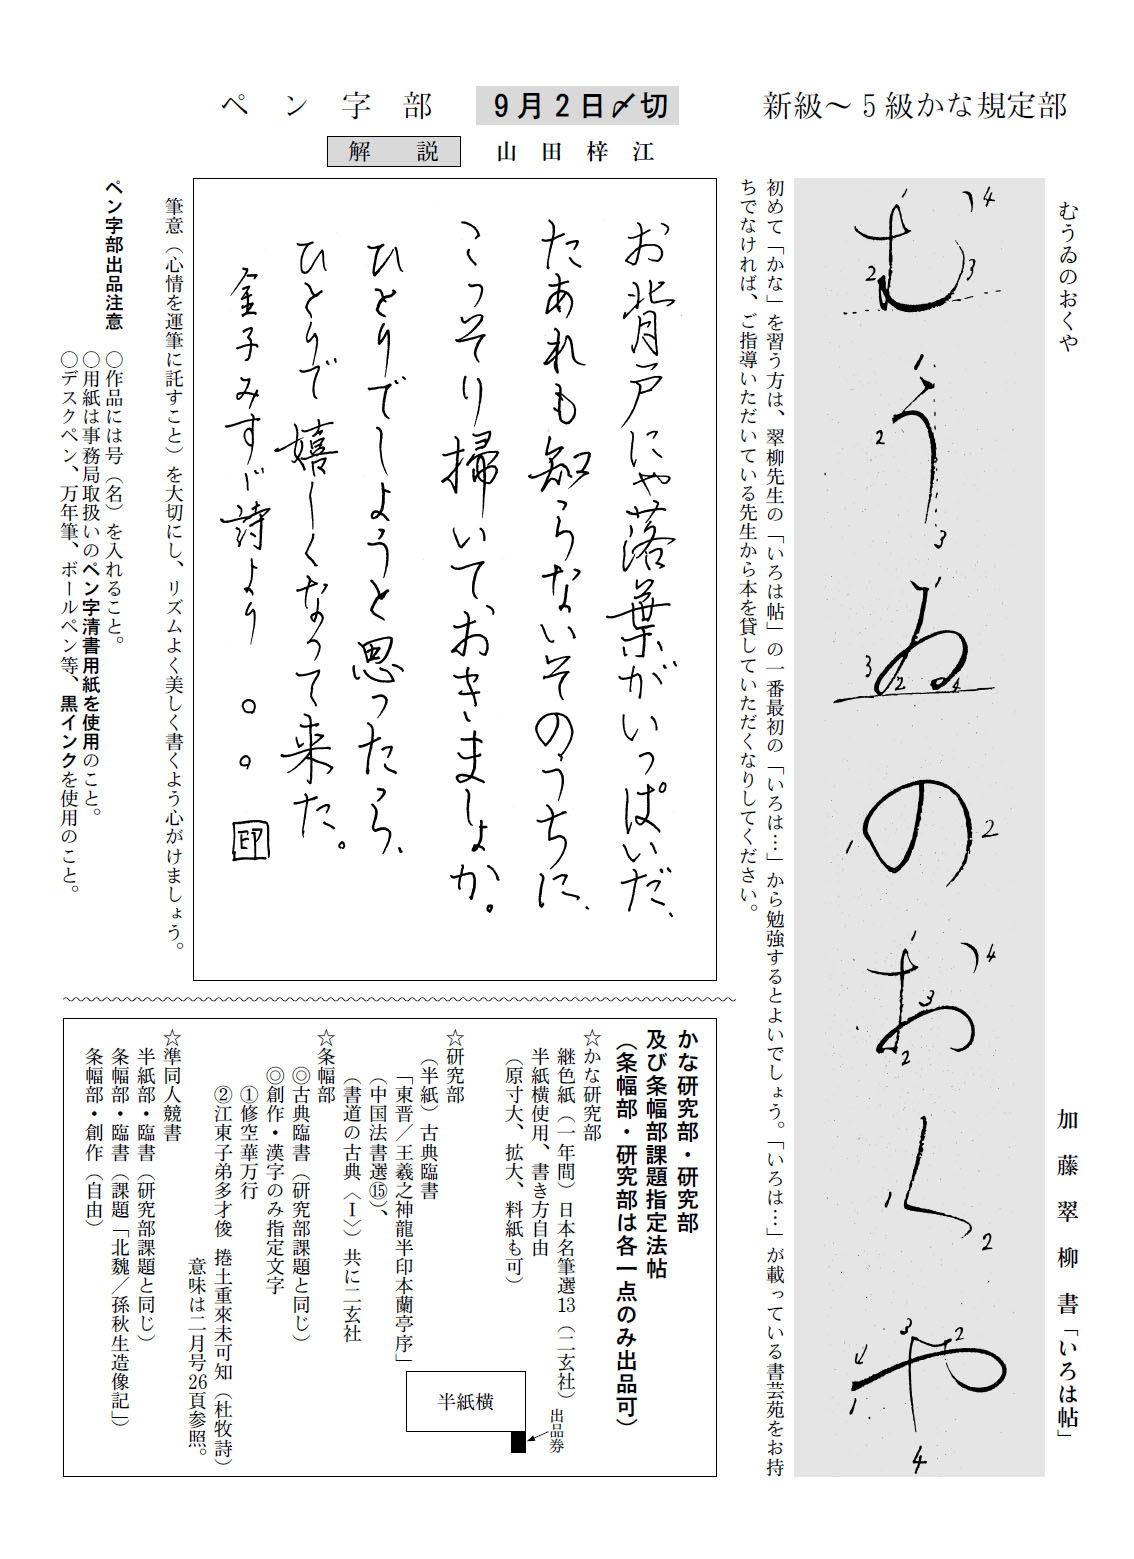 新級～5級かな規定部
むうゐのおくや
加藤翠柳書「いろは帖」
むうゐのおくや
4
1
2
3
1
2
3
1
3
2
4
1
2
1
4
3
2
1
2
3
2
1
4
初めて「かな」を習う方は、翠柳先生の「いろは帖」の一番最初の「いろは…」から勉強するとよいでしょう。「いろは…」が載っている書芸苑をお持
ちでなければ、ご指導いただいている先生から本を貸していただくなりしてください。
9月2日〆切
ペン字部
解説
山田梓江
お背戸にゃ落葉がいっぱいだ、
たあれも知らないそのうちに、
こっそり掃いておきましょか。
ひとりでしようと思ったら、
ひとりで嬉しくなって来た。
金子みすゞ詩より 。。印
筆意（心情を運筆に託すこと）を大切にし、リズムよく美しく書くよう心がけましょう。
ペン字部出品注意
○作品には号（名）を入れること。
○用紙は事務局取扱いのペン字清書用紙を使用のこと。
○デスクペン、万年筆、ボールペン等、黒インクを使用のこと。
かな研究部・研究部
及び条幅部課題指定法帖
（条幅部・研究部は各一点のみ出品可）
☆かな研究部
継色紙（一年間）日本名筆選13（二玄社）
半紙横使用、書き方自由
（原寸大、拡大、料紙も可）
出品券
半紙横
☆研究部
（半紙）古典臨書
「東晋／王羲之神龍半印本蘭亭序」
（中国法書選⑮）、
（書道の古典〈Ⅰ〉）共に二玄社
☆条幅部
◎古典臨書（研究部課題と同じ）
◎創作・漢字のみ指定文字
①修空華万行
②江東子弟多才俊 捲土重來未可知（杜牧詩）
意味は二月号26頁参照。
☆準同人競書
半紙部・臨書（研究部課題と同じ）
条幅部・臨書（課題「北魏／孫秋生造像記」）
条幅部・創作（自由）